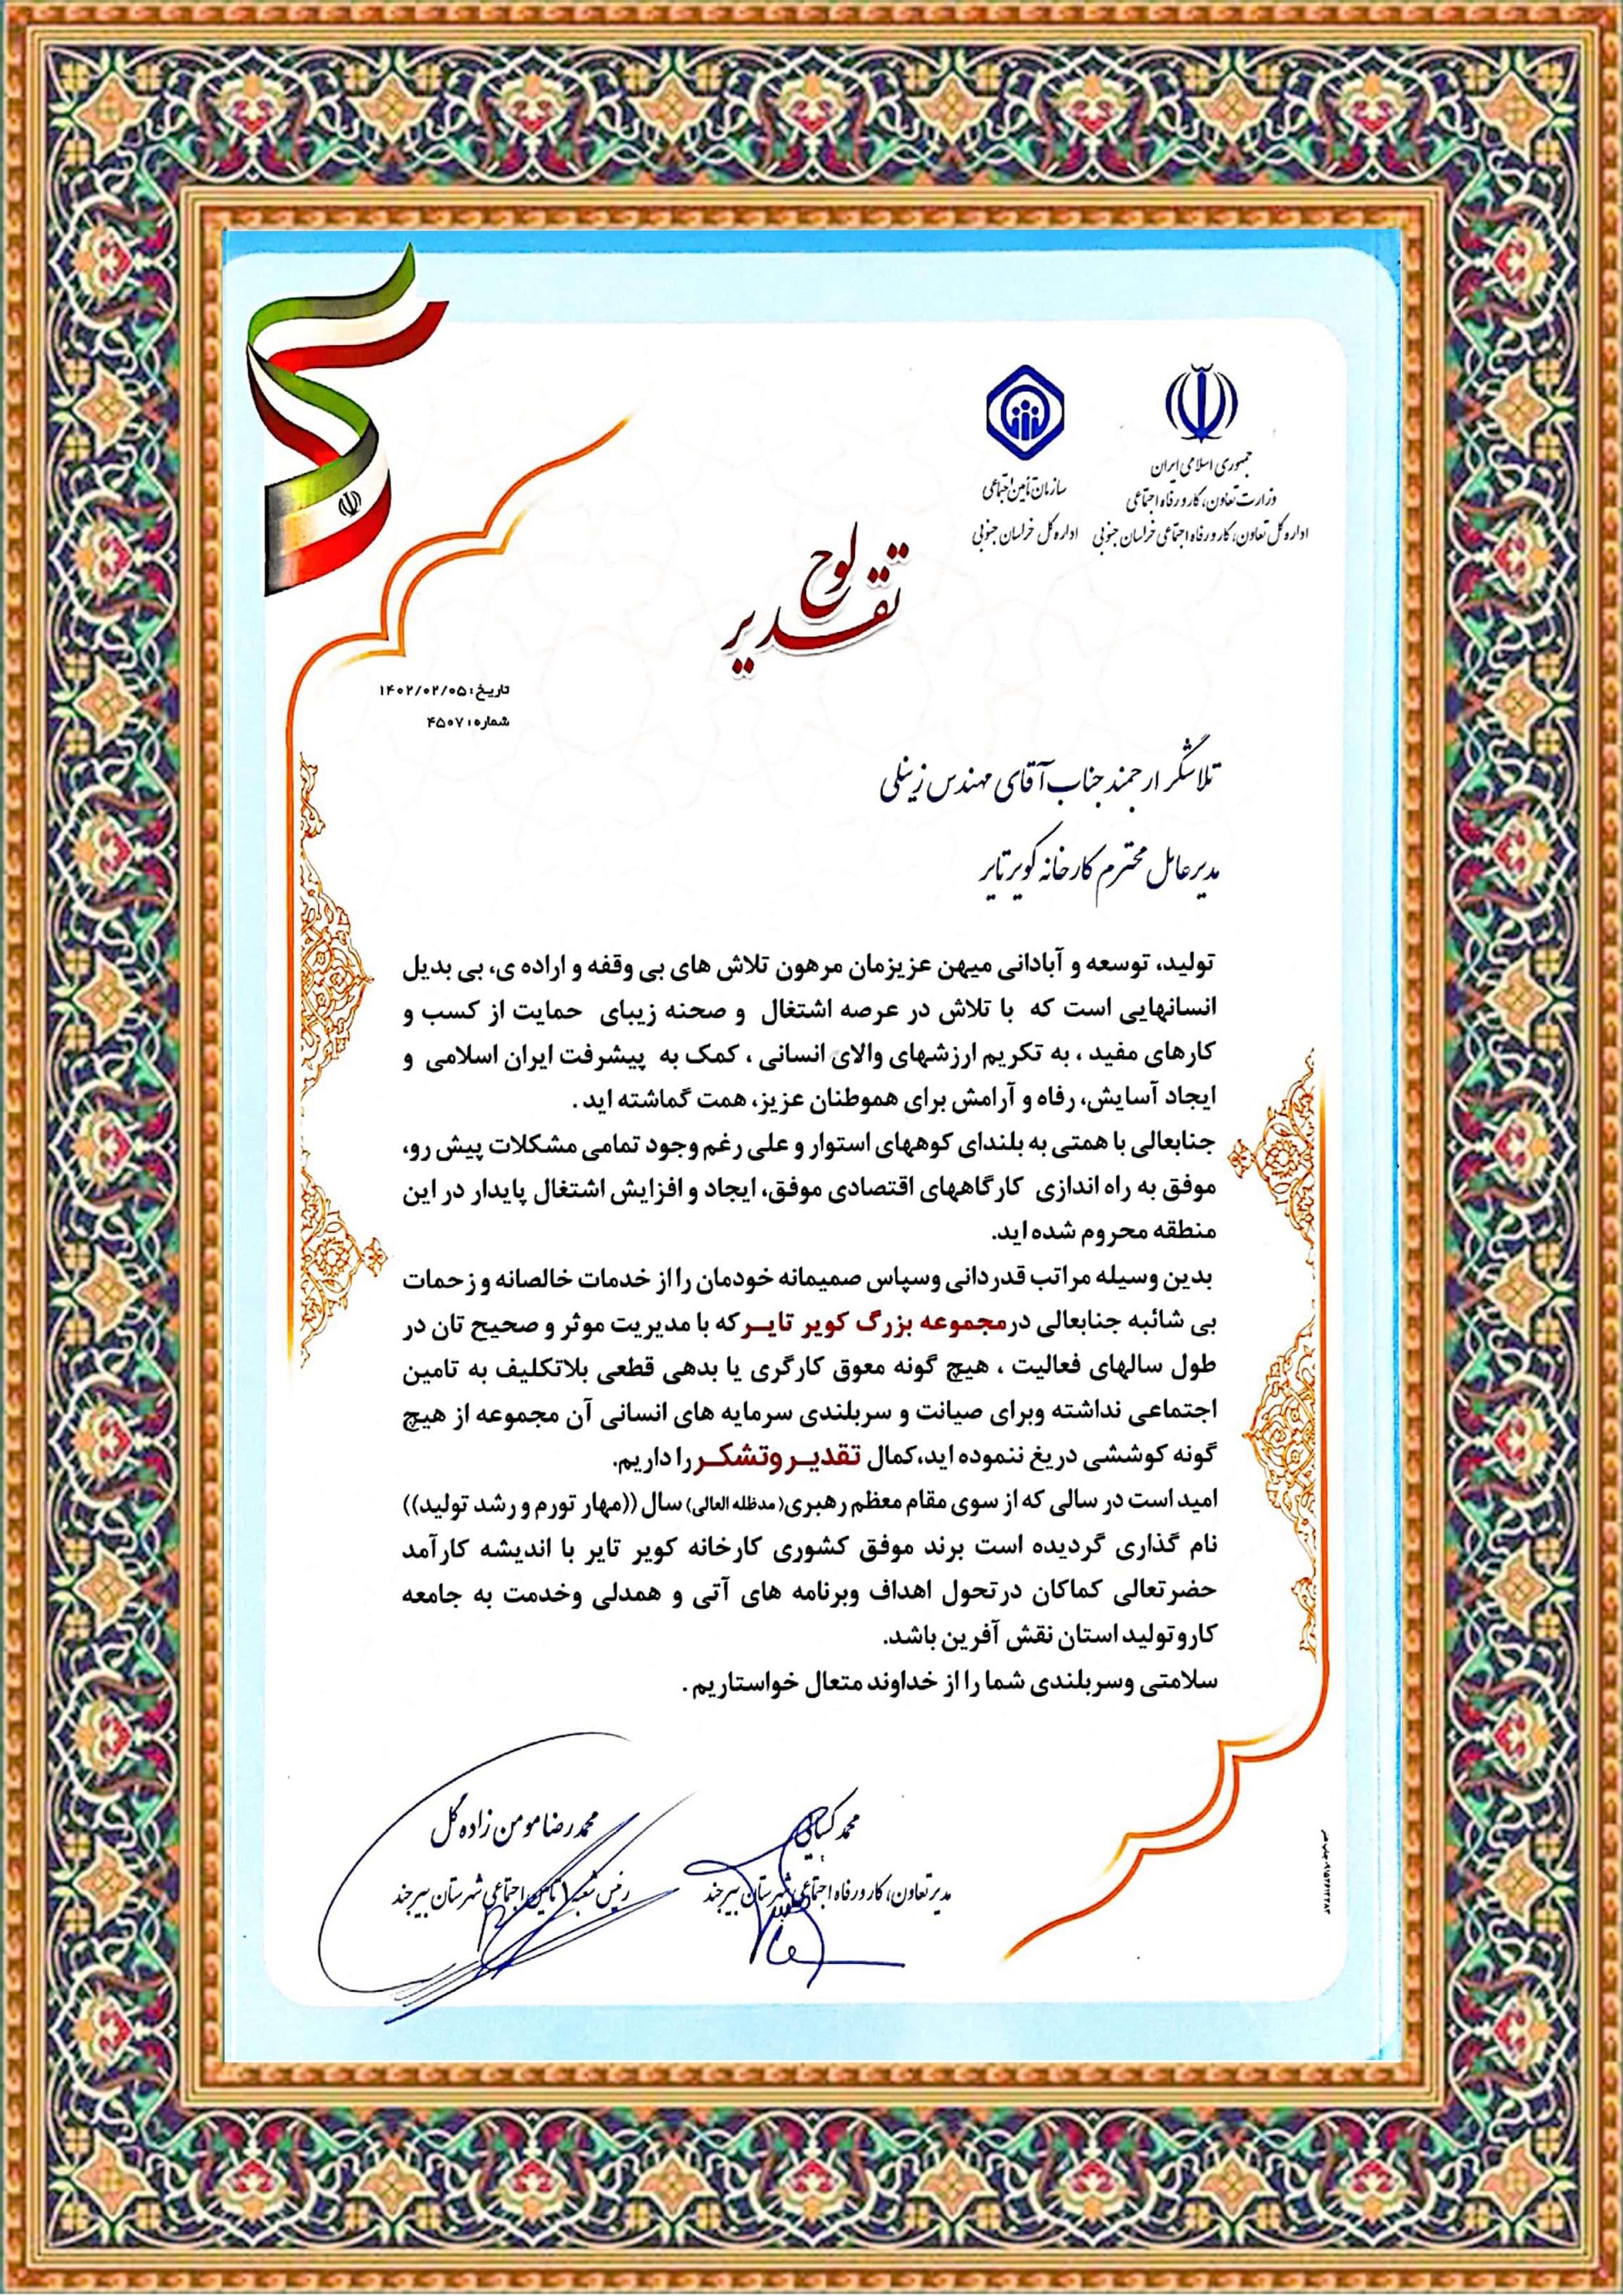 جمهوری اسلامی ایران
وزارت تعاون، کار و رفاه اجتماعی
اداره کل تعاون، کار و رفاه اجتماعی خراسان جنوبی
سازمان تأمین اجتماعی
اداره کل خراسان جنوبی
لوح
تقدیر
تاریخ: ۱۴۰۲/۰۲/۰۵
شماره: ۴۵۰۷
تلاشگر ارجمند جناب آقای مهندس زینلی
مدیرعامل محترم کارخانه کویرتایر
تولید، توسعه و آبادانی میهن عزیزمان مرهون تلاش های بی وقفه و اراده ی، بی بدیل
انسانهایی است که با تلاش در عرصه اشتغال و صحنه زیبای حمایت از کسب و
کارهای مفید ، به تکریم ارزشهای والای انسانی ، کمک به پیشرفت ایران اسلامی و
ایجاد آسایش، رفاه و آرامش برای هموطنان عزیز، همت گماشته اید .
جنابعالی با همتی به بلندای کوههای استوار و علی رغم وجود تمامی مشکلات پیش رو،
موفق به راه اندازی کارگاههای اقتصادی موفق، ایجاد و افزایش اشتغال پایدار در این
منطقه محروم شده اید.
بدین وسیله مراتب قدردانی وسپاس صمیمانه خودمان را از خدمات خالصانه و زحمات
بی شائبه جنابعالی در مجموعه بزرگ کویر تایر که با مدیریت موثر و صحیح تان در
طول سالهای فعالیت ، هیچ گونه معوق کارگری یا بدهی قطعی بلاتکلیف به تامین
اجتماعی نداشته وبرای صیانت و سربلندی سرمایه های انسانی آن مجموعه از هیچ
گونه کوششی دریغ ننموده اید، کمال تقدیر وتشکر را داریم.
امید است در سالی که از سوی مقام معظم رهبری(مدظله العالی) سال ((مهار تورم و رشد تولید))
نام گذاری گردیده است برند موفق کشوری کارخانه کویر تایر با اندیشه کارآمد
حضرتعالی کماکان درتحول اهداف وبرنامه های آتی و همدلی وخدمت به جامعه
کار و تولید استان نقش آفرین باشد.
سلامتی وسربلندی شما را از خداوند متعال خواستاریم .
محمد
مدیر تعاون، کار و رفاه اجتماعی شهرستان بیرجند
محمدرضا مومن زاده گل
رئیس شعبه ۱ تأمین اجتماعی شهرستان بیرجند